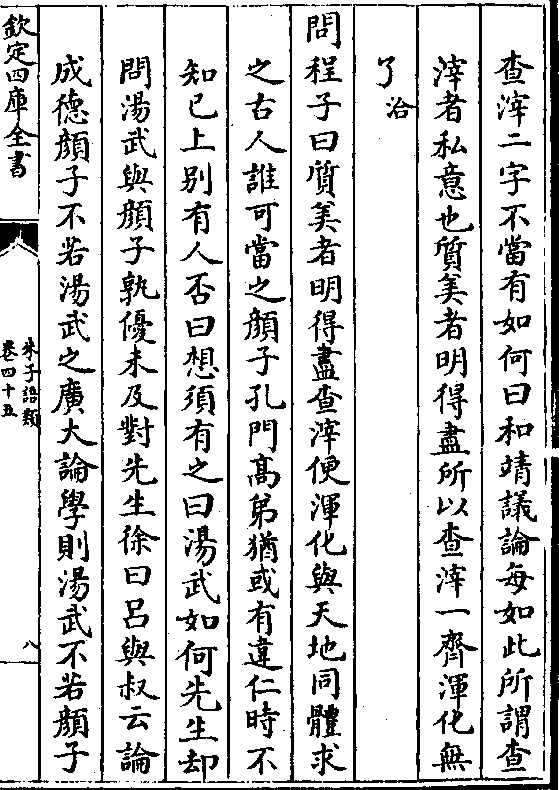 查滓二字不當有如何曰和靖議論每如此所謂查
滓者私意也質美者明得盡所以查滓一齊渾化無
了治
問程子曰質美者明得盡查滓便渾化與天地同體求
之古人誰可當之顔子孔門髙弟猶或有違仁時不
知已上別有人否曰想須有之曰湯武如何先生却
問湯武與顔子孰優未及對先生徐曰呂與叔云論
成德顔子不若湯武之廣大論學則湯武不若顔子
欽定四庫全書
朱子語類
卷四十五
八